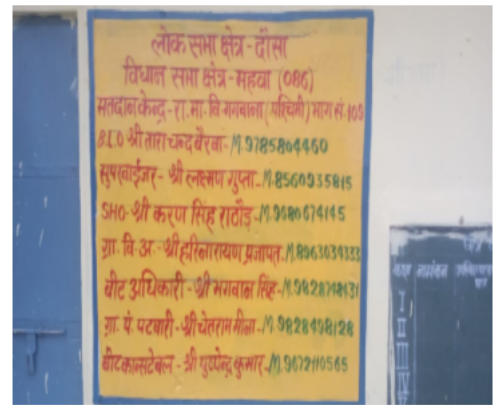 लोक सभा क्षेत्र - दौसा
विधान सभा क्षेत्र - महवा (086)
मतदान केन्द्र - रा. मा. वि. गगवाना (पश्चिमी) भाग सं. 109
B.L.O श्री तारा चन्द बैरवा - M.9785804460
सुपरवाईजर - श्री लक्ष्मण गुप्ता - M.8560935815
SHO - श्री करण सिंह राठौड़ - M.9680674145
ग्रा. वि. अ. - श्री हरिनारायण प्रजापत - M.8963034333
बीट अधिकारी - श्री भगवान सिंह - M.9828748431
ग्रा. पं. पटवारी - श्री चेतराम मीना - M.9828498128
बीट कान्सटेबल - श्री पुष्पेन्द्र कुमार - M.9672110565
कक्षा नामांकन
I
II
III
IV